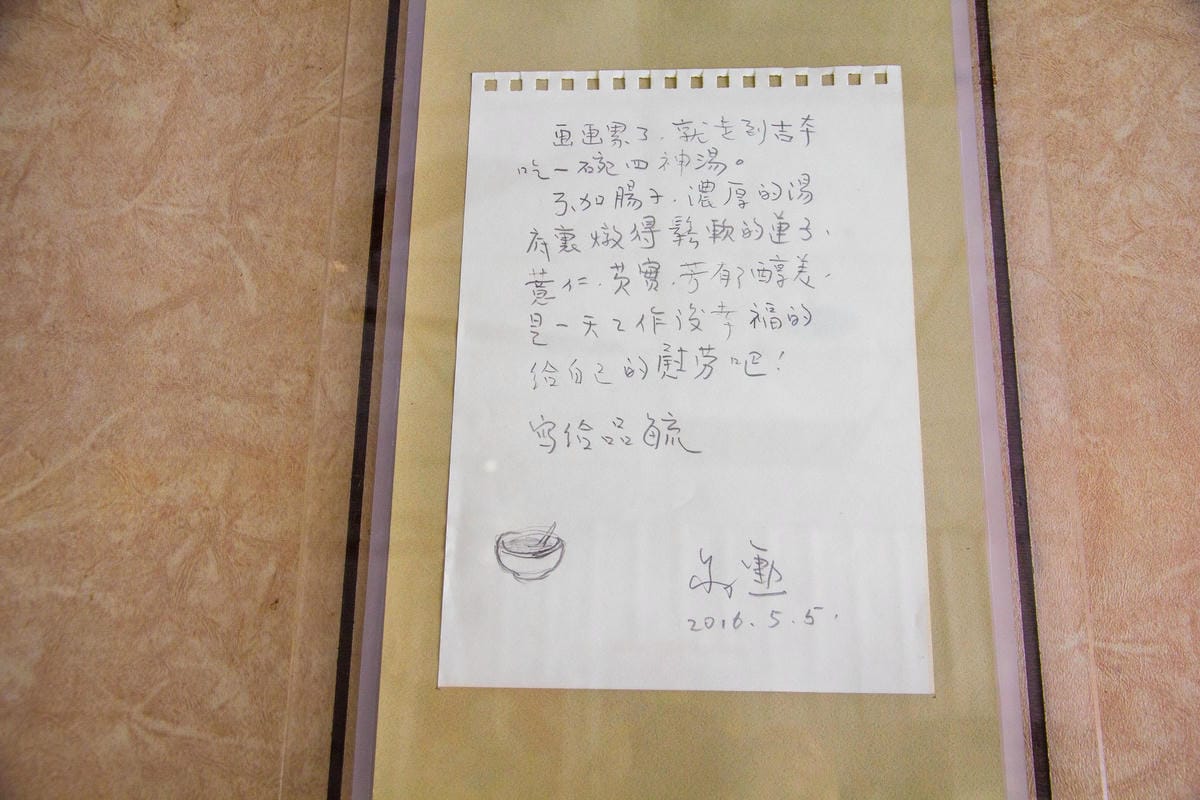 画画累了,就走到吉本
吃一碗四神湯。
不加腸子,濃厚的湯
裏燉得鬆軟的蓮子、
薏仁、芡實,芳有了醇美,
是一天工作後幸福的
給自己的慰劳吧!
写给品毓
蒋勳
2016.5.5.